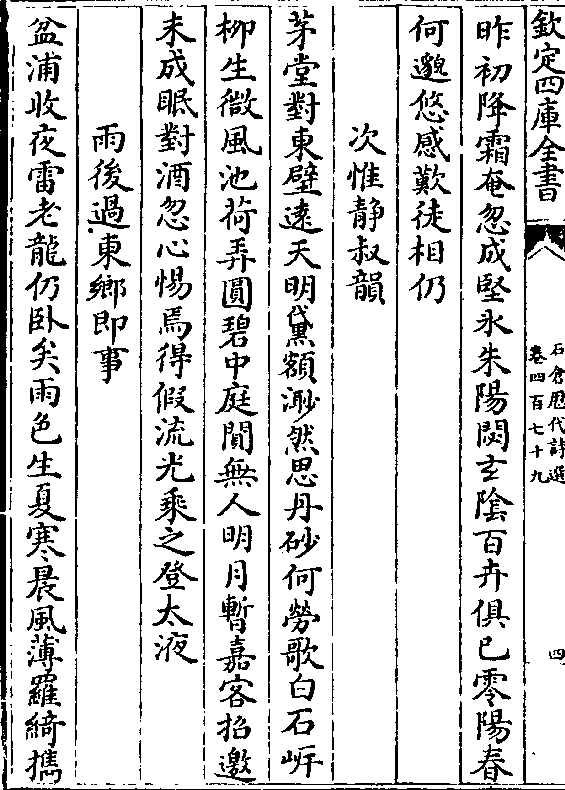 欽定四庫全書
石倉歷代詩選
卷四百七十九
四
昨初降霜奄忽成堅氷朱陽閟玄陰百卉俱已零陽春
何邈悠感歎徒相仍
次惟静叔韻
茅堂對東壁遠天明黛額渺然思丹砂何勞歌白石岸
栁生微風池荷弄圓碧中庭閴無人明月暫嘉客招邀
未成眠對酒忽心惕焉得假流光乘之登太液
雨後過東鄉即事
盆浦收夜雷老龍仍卧矣雨色生夏寒晨風薄羅綺攜